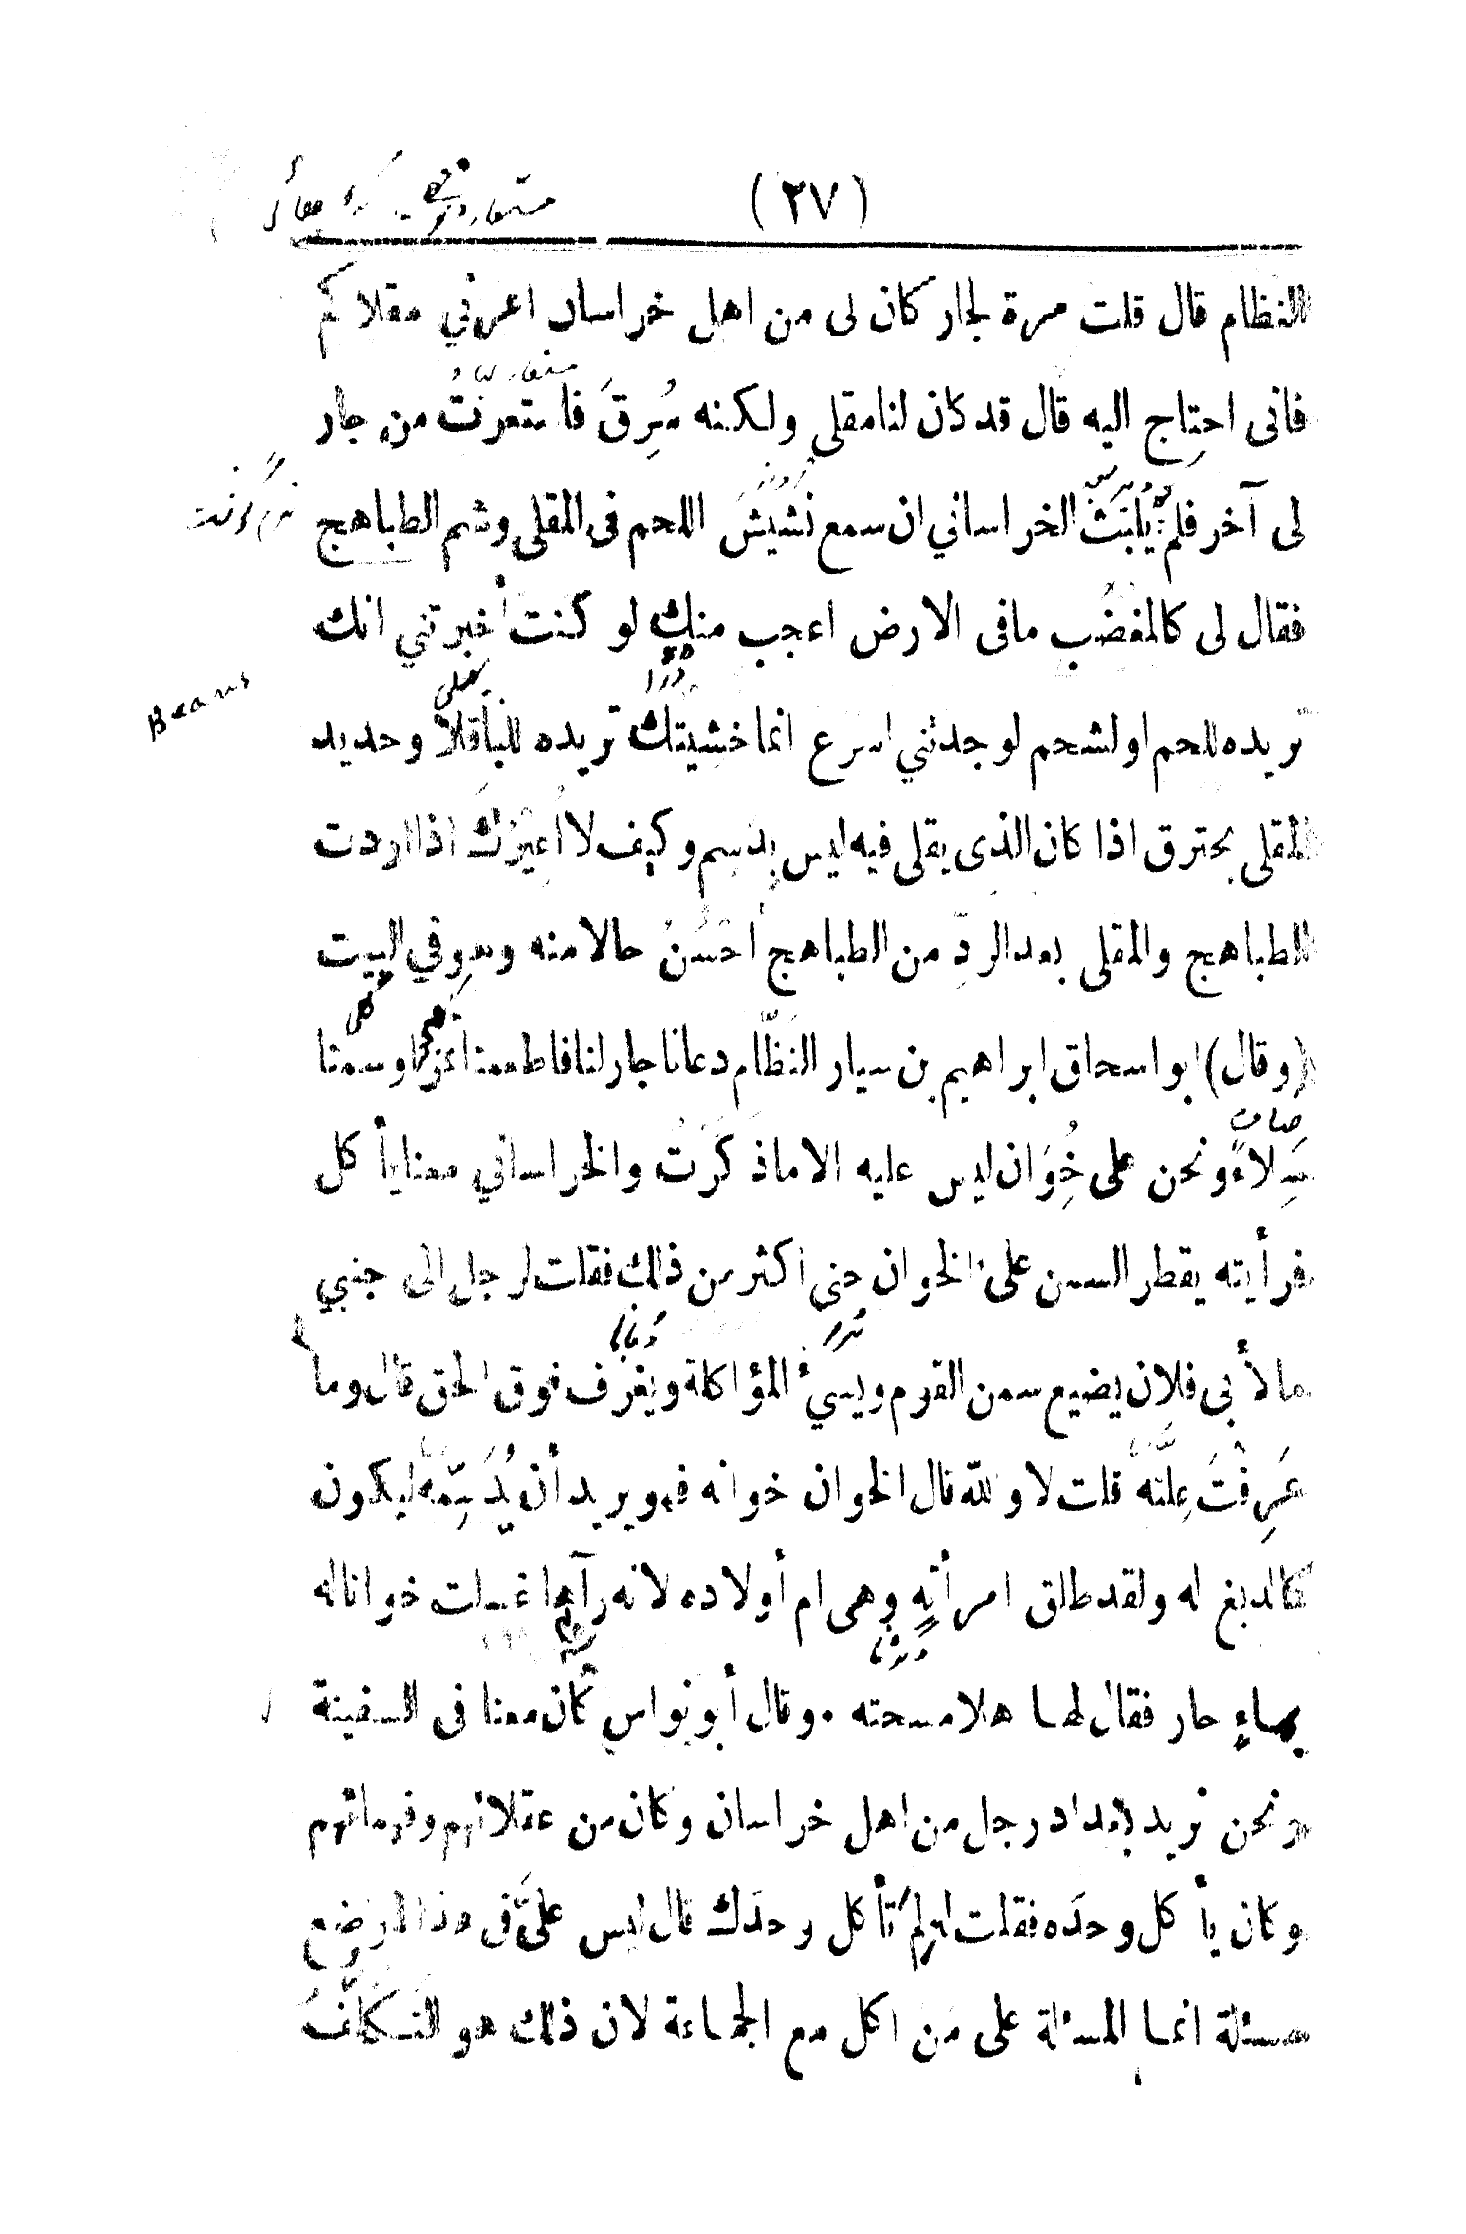 (٢٧)
النظام قال قلت مرة لجار كان لى من اهل خراسان اعرني مقلاكم
فانى احتاج اليه قال قد كان لنا مقلى ولكنه سُرِقَ فاستعرتُ من جار
لى آخر فلم يلبَث الخراساني ان سمع نشيش اللحم فى المقلى وشم الطباهج
فقال لى كالمغضُب مافى الارض اعجب منك لو كنت أخبرتني انك
تريده للحم اولشحم لوجدتني اسرع انما خشيتك تريده للباقلا وحديد
المقلى يحترق اذا كان الذى يقلى فيه ليس بِدَسِم وكيف لا أُعيرُك اذا اردت
الطباهج والمقلى بعد الردِّ من الطباهج أحسَنُ حالا منه وهو في البيت
(وقال) ابو اسحاق ابراهيم بن سيار النظّام دعانا جار لنا فاطعمنا تمرا وسمنا
سِلاءً ونحن على خُِوَان ليس عليه الا ماذكَرَتُ والخراساني معنا يأكل
فرأيته يقطر السمن على الخوان حتى اكثر من ذلك فقلت لرجل الى جنبي
ما لأبى فلان يضيع سمن القوم ويسيُ المؤاكلة ويغرف فوق الحق قال وما
عَرِفْتَ عِلَّتَهُ قلت لا والله قال الخوان خوانه فهو يريد أن يُدَسِّمَهُ ليكون
كالدبغ له ولقد طلق امرأته وهى ام أولاده لانه رآها غسلت خوانا له
بماءٍ حار فقال لها هلا مسحته ٠ وقال أبو نواس كان معنا فى السفينة
ونحن نريد بغداد رجل من اهل خراسان وكان من عقلائهم وفهمائهم
وكان يأكل وحدَه فقلت له لِمَ تأكل وحدَك قال ليس علىَّ فى هذا الموضع
مسئلة انما المسئلة على مَن اكل مع الجماعة لان ذلك هو التَكَلُّفُ
Beans